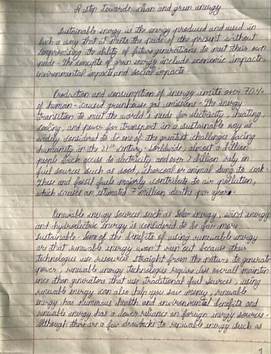 A step towards clean and green energy
Sustainable energy is the energy produced and used in
such a way that it meets the needs of the present without
compromising the ability of future generations to meet their own
needs. The concepts of green energy include economic impacts,
environmental impacts and social impacts.
Production and consumption of energy emits over 70%
of human-caused greenhouse gas emissions. The energy
transition to meet the world's needs for electricity, heating,
cooling, and power for transport in a sustainable way is
widely considered to be one of the greatest challenges facing
humanity in the 21st century. Worldwide, almost a billion
people lack access to electricity and over 2 billion rely on
fuel sources such as wood, charcoal or animal dung to cook.
These and fossil fuels mainly contribute to air pollution,
which causes an estimated 7 million deaths per year.
Renewable energy sources such as solar energy, wind energy
and hydroelectric energy is considered to be far more
sustainable. Some of the benefits of using renewable energy
is that renewable energy won't run out because these
technologies use resources straight from the nature to generate
power, renewable energy technologies require less overall mainten-
ance than generators that use traditional fuel sources, using
renewable energy can also help you save money, renewable
energy has numerous health and environmental benefits and
renewable energy has a lower reliance on foreign energy sources.
Although there are a few drawbacks to renewable energy such as